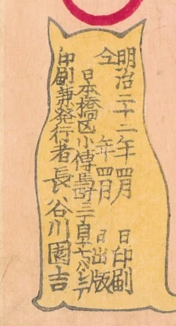 明治二十二年四月　日印刷
仝　年四月　日出版
日本橋区小傳馬町三丁目
印刷兼発行者長谷川園吉